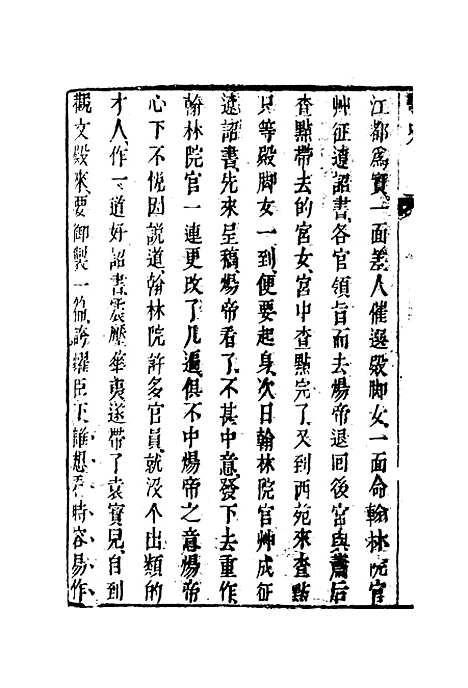 江都爲實一面差人催選殿脚女一面命翰林院官
艸征遼詔書各官領旨而去煬帝退回後宮與蕭后
查點帶去的宮女宮中查點完了又到西苑來查點
只等殿脚女一到便要起身次日翰林院官艸成征
遼詔書先來呈稿煬帝看了不甚中意發下去重作
翰林院官一連更改了几遍俱不中煬帝之意煬帝
心下不悅因說道翰林院許多官員就没个出類的
才人作一道好詔書震壓華夷遂帶了袁寶兒自到
觀文殿來要御製一篇誇耀臣下誰想看時容易作